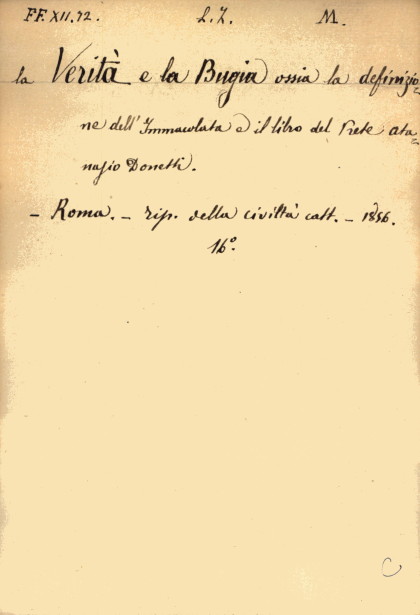 FF. XII. 72. L. Z. M.
la Verità e la Bugia ossia la definizio=
ne dell'Immacolata e il libro del Prete Ata=
nasio Donetti.
– Roma. – tip. della civiltà catt. – 1856.
16°.
C